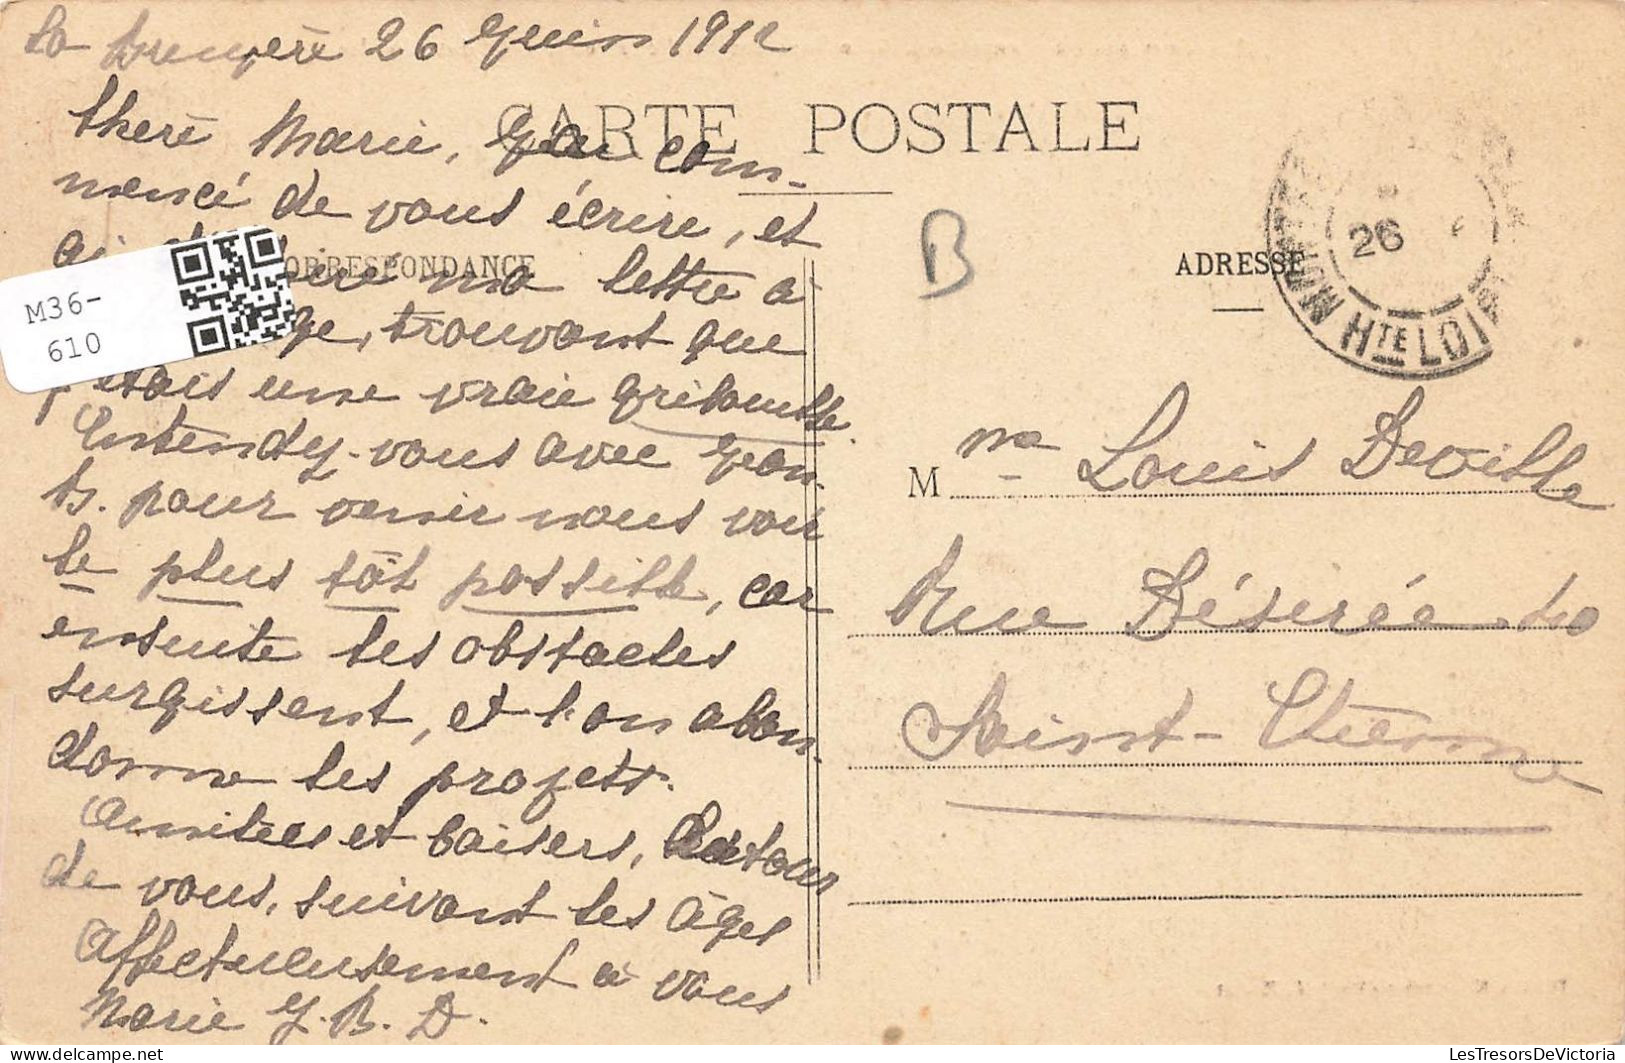 La Bruyère 26 Juin 1912
CARTE POSTALE
Chère Marie, J'ai com-
mencé de vous écrire, et
ai ma lettre à
CORRESPONDANCE
trouvant que
j'étais une vraie gribouille.
Entendez-vous avec Jean
B. pour venir nous voir
le plus tôt possible, car
ensuite les obstacles
surgissent, et l'on aban-
donne les projets.
Amitiés et baisers, autour
de vous, suivant les âges
Affectueusement à vous
Marie J. B. D.
M36-
610
B
ADRESSE
26
HTE LOIRE
M me Louis Deville
Rue Désirée. 40
Saint-Etienne
LesTresorsDeVictoria